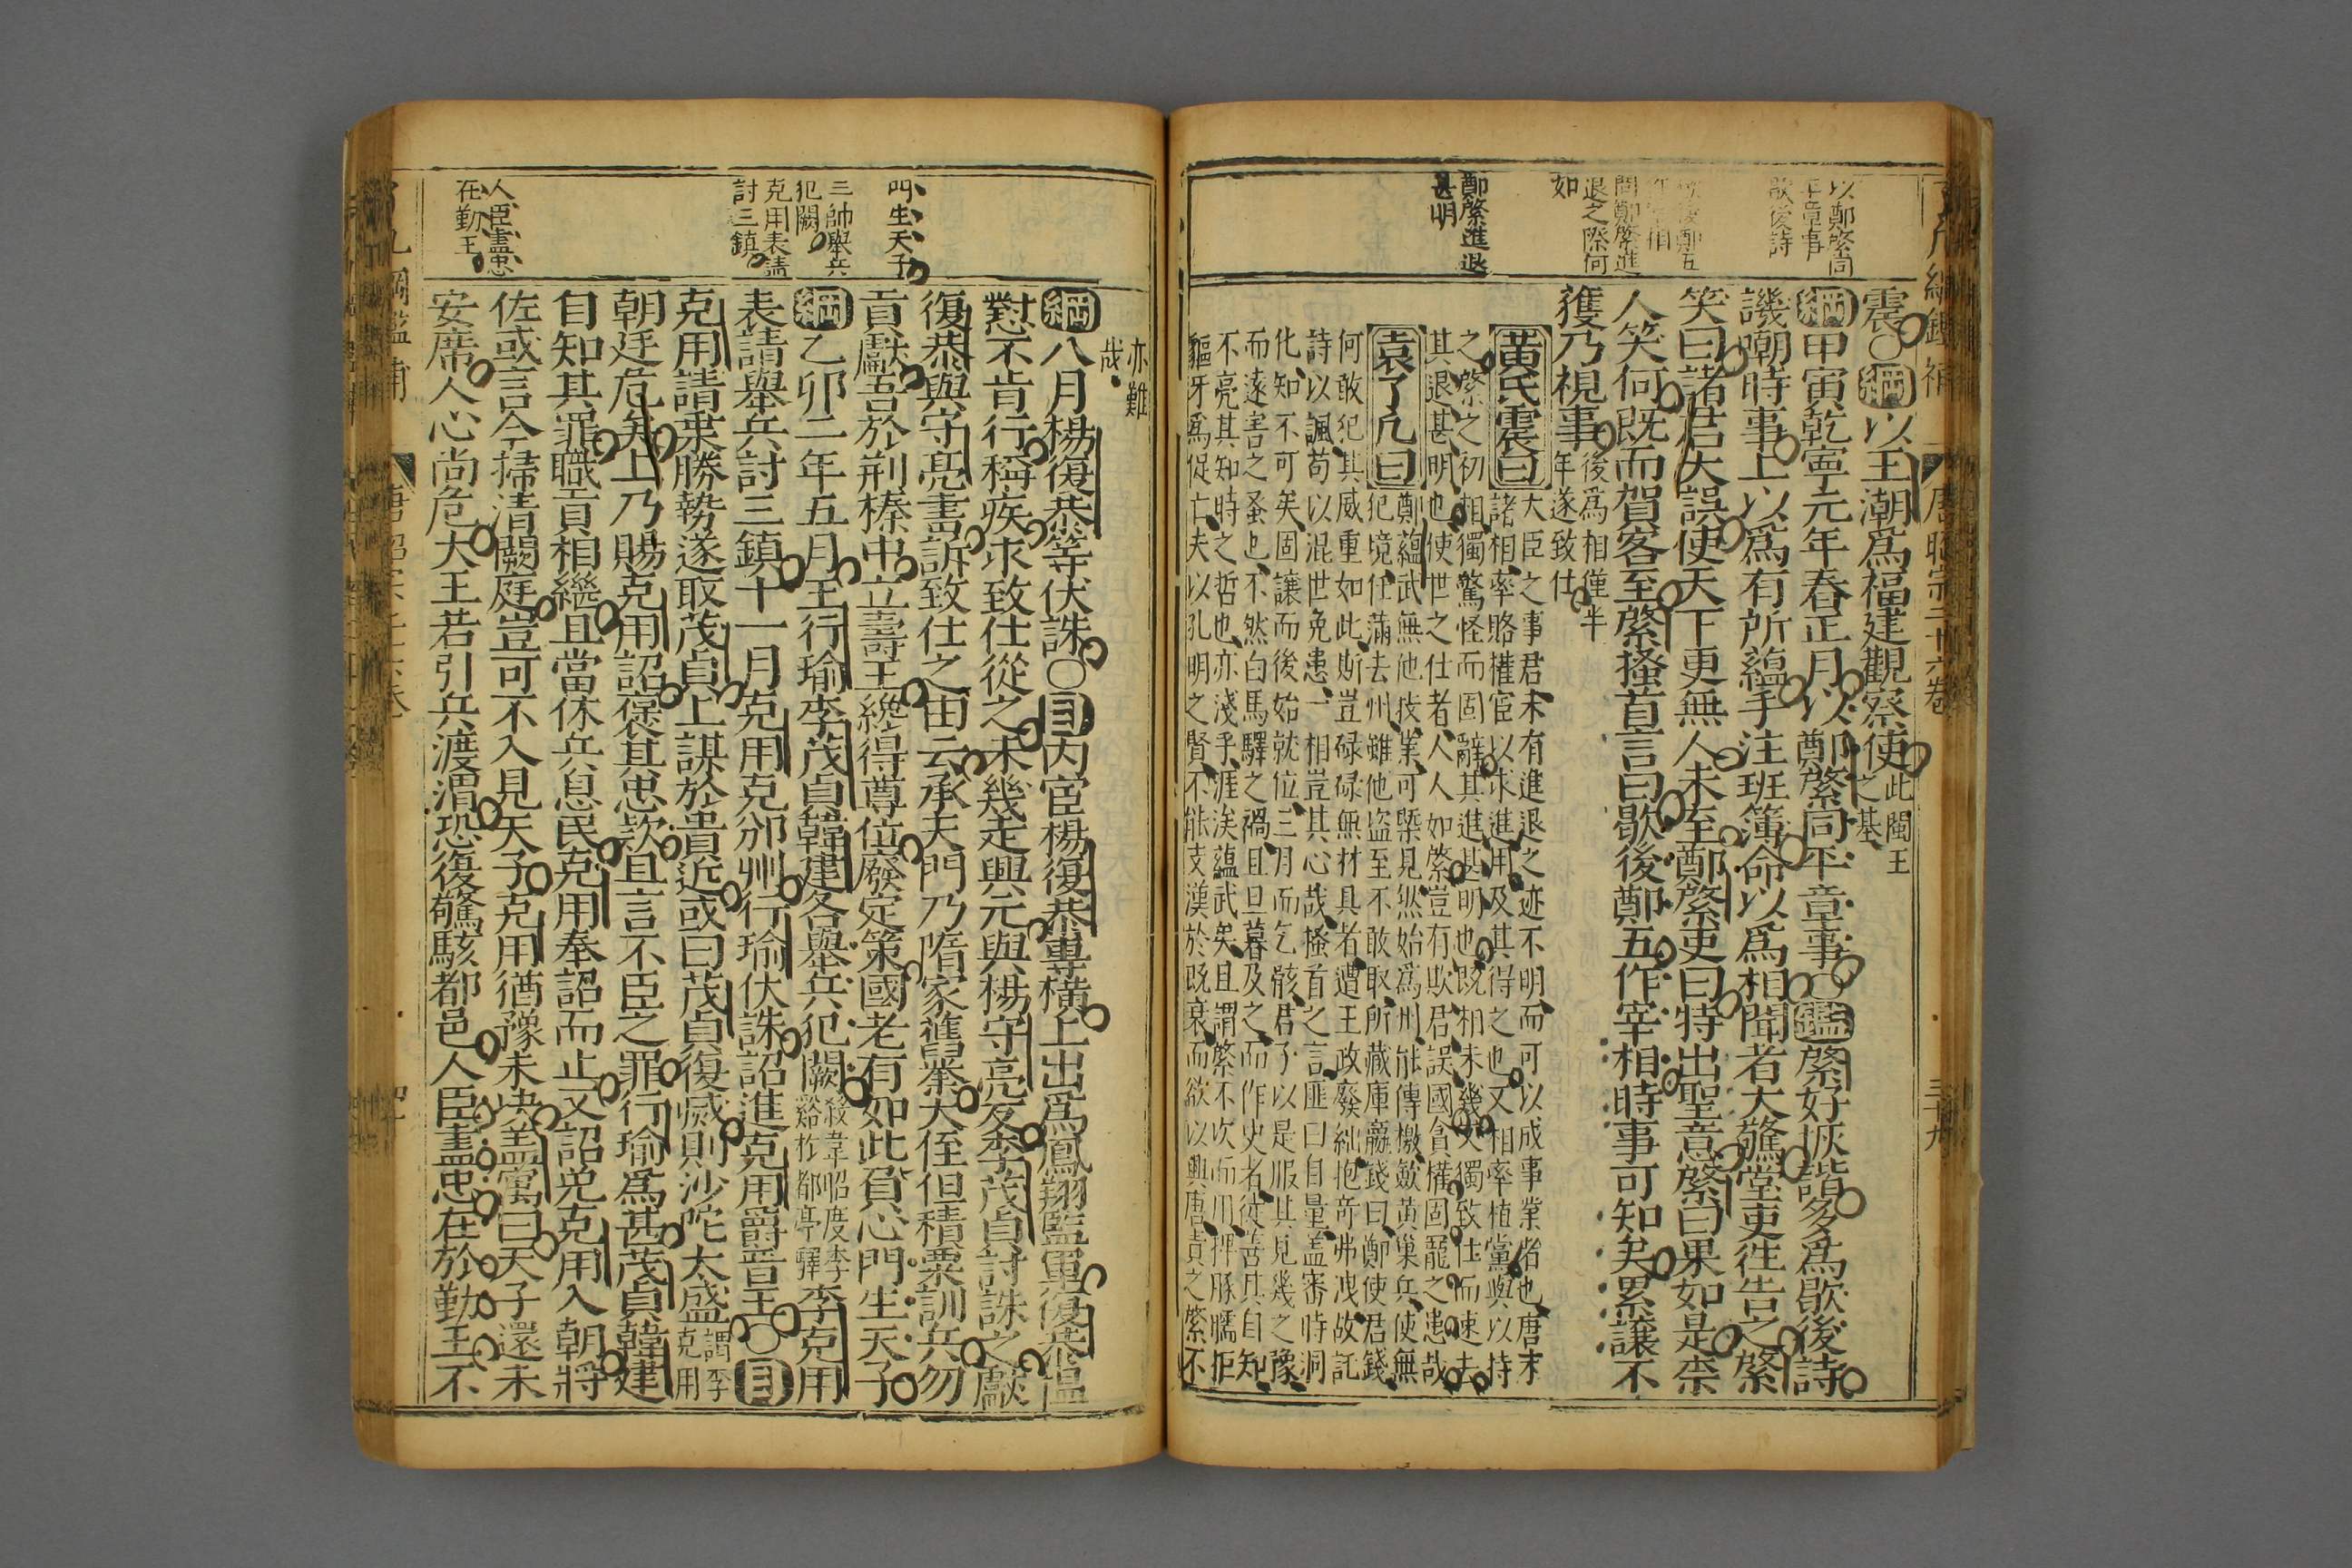 以鄭綮同
平章事
歇後詩
問鄭綮進
退之際何
如
鄭綮進退
甚明
震〇綱以王潮爲福建觀察使此閩王之基
綱甲寅乾寧元年春正月以鄭綮同平章事〇鑑綮好詼諧多爲歇後詩
譏嘲時事上以爲有所蘊手注班簿命以爲相聞者大驚堂吏徃告之綮
笑曰諸君大誤使天下更無人未至鄭綮吏曰特出聖意綮曰果如是柰
人笑何既而賀客至綮搔首言曰歇後鄭五作宰相時事可知矣累讓不
獲乃視事後爲相僅半年遂致仕
黃氏震曰大臣之事君未有進退之迹不明而可以成事業者也唐末
諸相率賂權宦以求進用及其得之也又相率植黨與以持
之綮之初相獨驚怪而固辭其進甚明也既相未幾又獨致仕而速去
其退甚明也使世之仕者人人如綮豈有欺君誤國貪權固寵之患哉
袁了凡曰鄭蘊武無他技業可槩見然始爲州能傳檄斂黃巢兵使無
犯境任滿去州雖他盗至不敢取所藏庫齹錢曰鄭使君錢
何敢犯其威重如此斯豈碌碌無材具者遭王政廢絀抱竒弗洩故託
詩以諷苟以混世免患一相豈其心哉搔首之言匪曰自量蓋審時洞
化知不可矣固讓而後始就位三月而乞骸君子以是服其見幾之豫
而遂害之蚤也不然白馬驛之禍且旦暮及之而作史者徒善其自知
不亮其知時之哲也亦淺乎涯涘蘊武矣且謂綮不次而用捭豚臑拒
貙牙爲促亡夫以孔明之賢不能支漢於既衰而欲以興唐責之綮不
亦難
哉
門生天子
三帥舉兵
犯闕
克用表請
討三鎮
人臣盡忠
在勤王
綱八月楊復恭等伏誅〇目内宦楊復恭專橫上出爲鳳翔監軍復恭愠
懟不肯行稱疾求致仕從之未幾走興元與楊守亮反李茂貞討誅之獻
復恭與守亮書訴致仕之由云承天門乃隋家舊業大侄但積粟訓兵勿
貢獻吾於荆榛中立壽王纔得尊位廢定策國老有如此負心門生天子
綱乙卯二年五月王行瑜李茂貞韓建各舉兵犯闕殺韋昭度李谿於都亭驛李克用
表請舉兵討三鎮十一月克用克邠州行瑜伏誅詔進克用爵晉王〇目
克用請乗勝勢遂取茂貞上謀於貴近或曰茂貞復滅則沙陀太盛謂李克用
朝廷危矣上乃賜克用詔褒其忠欵且言不臣之罪行瑜爲甚茂貞韓建
自知其罪職貢相繼且當休兵息民克用奉詔而止又詔免克用入朝將
佐或言今掃清闕庭豈可不入見天子克用猶豫未決盖寓曰天子還未
安席人心尚危大王若引兵渡渭恐復驚駭都邑人臣盡忠在於勤王不